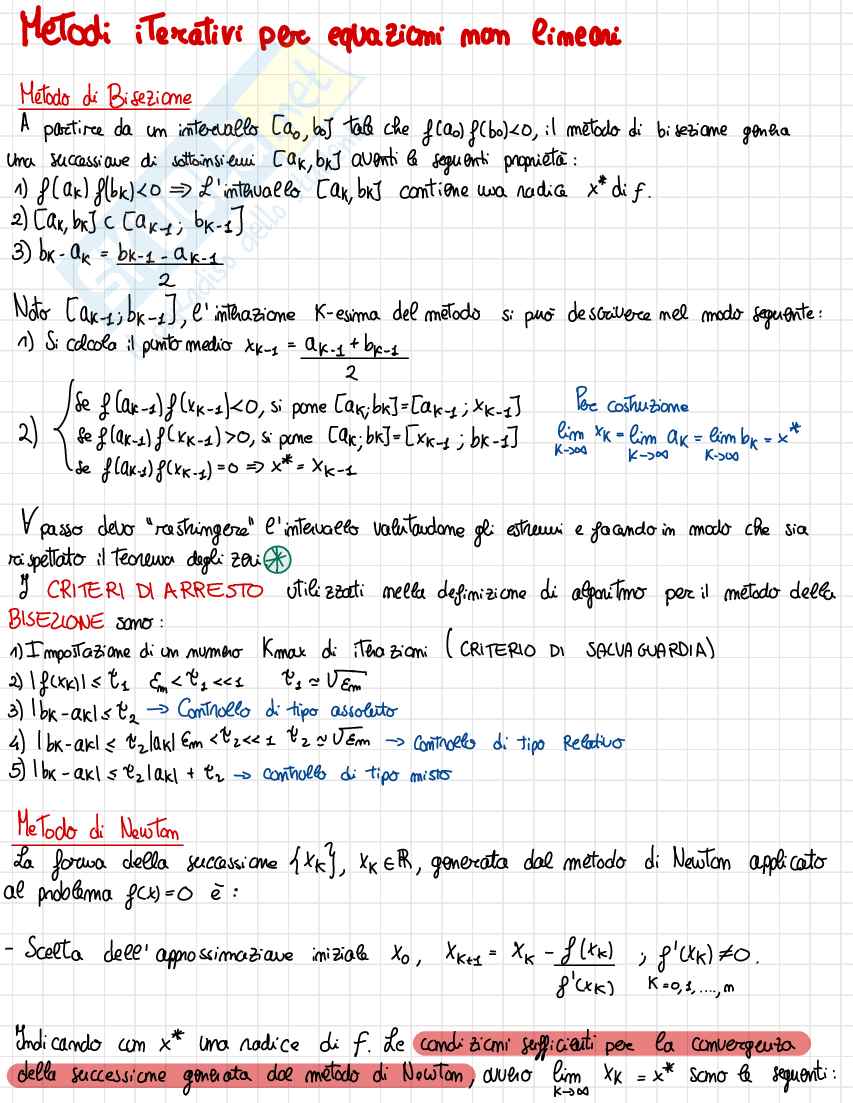 Metodi iterativi per equazioni non lineari
Metodo di Bisezione
A partire da un intervallo [a₀, b₀] tale che f(a₀) f(b₀)<0, il metodo di bisezione genera
una successione di sottoinsiemi [aₖ, bₖ] aventi le seguenti proprietà:
1) f(aₖ) f(bₖ)<0 ⇒ L'intervallo [aₖ, bₖ] contiene una radice x* di f.
2) [aₖ, bₖ] ⊂ [aₖ₋₁; bₖ₋₁]
3) bₖ - aₖ = (bₖ₋₁ - aₖ₋₁)/2
Noto [aₖ₋₁; bₖ₋₁], l'interazione K-esima del metodo si può descrivere nel modo seguente:
1) Si calcola il punto medio xₖ₋₁ = (aₖ₋₁ + bₖ₋₁)/2
2) { Se f(aₖ₋₁) f(xₖ₋₁)<0, si pone [aₖ; bₖ]=[aₖ₋₁; xₖ₋₁]
se f(aₖ₋₁) f(xₖ₋₁)>0, si pone [aₖ; bₖ]=[xₖ₋₁; bₖ₋₁]
se f(aₖ₋₁) f(xₖ₋₁)=0 ⇒ x* = xₖ₋₁
Per costruzione
lim K→∞ xₖ = lim K→∞ aₖ = lim K→∞ bₖ = x*
∀ passo devo "rastringere" l'intervallo valutandone gli estremi e facendo in modo che sia
rispettato il teorema degli zeri ⊛
I CRITERI DI ARRESTO utilizzati nella definizione di algoritmo per il metodo della
BISEZIONE sono:
1) Impostazione di un numero Kmax di iterazioni (CRITERIO DI SALVAGUARDIA)
2) |f(xₖ)| ≤ τ₁ εₘ < τ₁ << 1 τ₁ ≃ √εₘ
3) |bₖ - aₖ| ≤ τ₂ → Controllo di tipo assoluto
4) |bₖ - aₖ| ≤ τ₂|aₖ| εₘ < τ₂ << 1 τ₂ ≃ √εₘ → Controllo di tipo Relativo
5) |bₖ - aₖ| ≤ τ₂|aₖ| + τ₂ → controllo di tipo misto
Metodo di Newton
La forma della successione {xₖ}, xₖ ∈ ℝ, generata dal metodo di Newton applicato
al problema f(x)=0 è:
- Scelta dell'approssimazione iniziale x₀, xₖ₊₁ = xₖ - f(xₖ)/f'(xₖ) ; f'(xₖ) ≠ 0.
K=0,1,....,n
Indicando con x* una radice di f. Le condizioni sufficienti per la convergenza
della successione generata dal metodo di Newton, ovvero lim K→∞ xₖ = x* sono le seguenti: